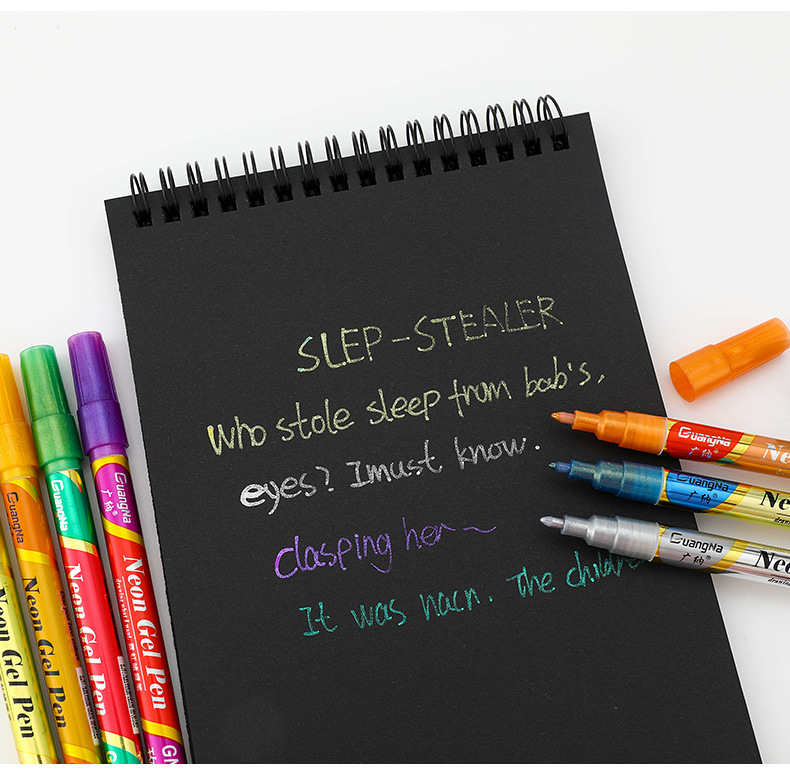 SLEP-STEALER
Who stole sleep from bab's,
eyes? I must know.
clasping her~
It was nacn. The childre
GuangNa Ne
广纳®
GuangNa Neo
广纳® drawin
GuangNa Neo
广纳® drawing
Neon Gel Pen
Neon Gel Pen
GuangNa
广纳
Neon Gel Pen
GuangNa
广纳
Neon Gel Pen
GN